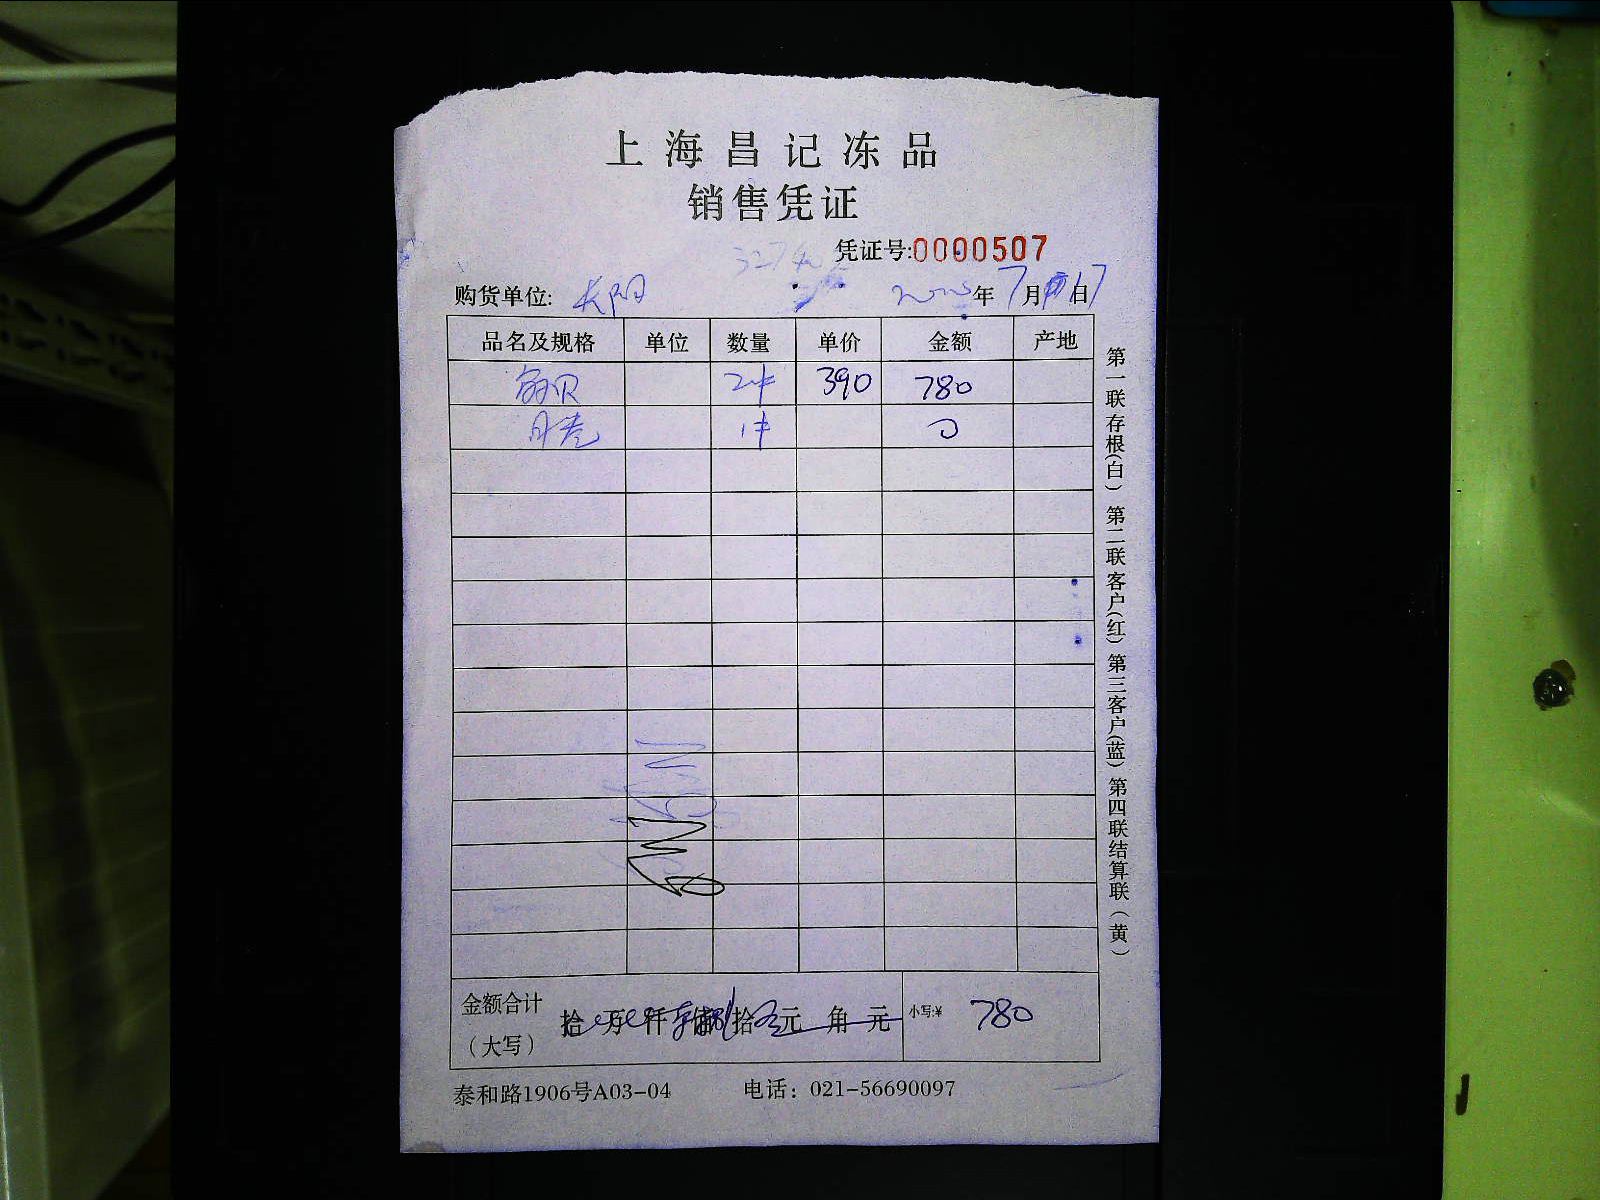 上海昌记冻品
销售凭证
凭证号:0000507
购货单位: 长阳 年7月17日
品名及规格 单位 数量 单价 金额 产地
2件 390 780
月亮 1件 0
金额合计
(大写)
拾 万 仟 佰 拾 元 角 元 小写:¥ 780
泰和路1906号A03-04 电话: 021-56690097
第一联存根(白) 第二联客户(红) 第三客户(蓝) 第四联结算联(黄)